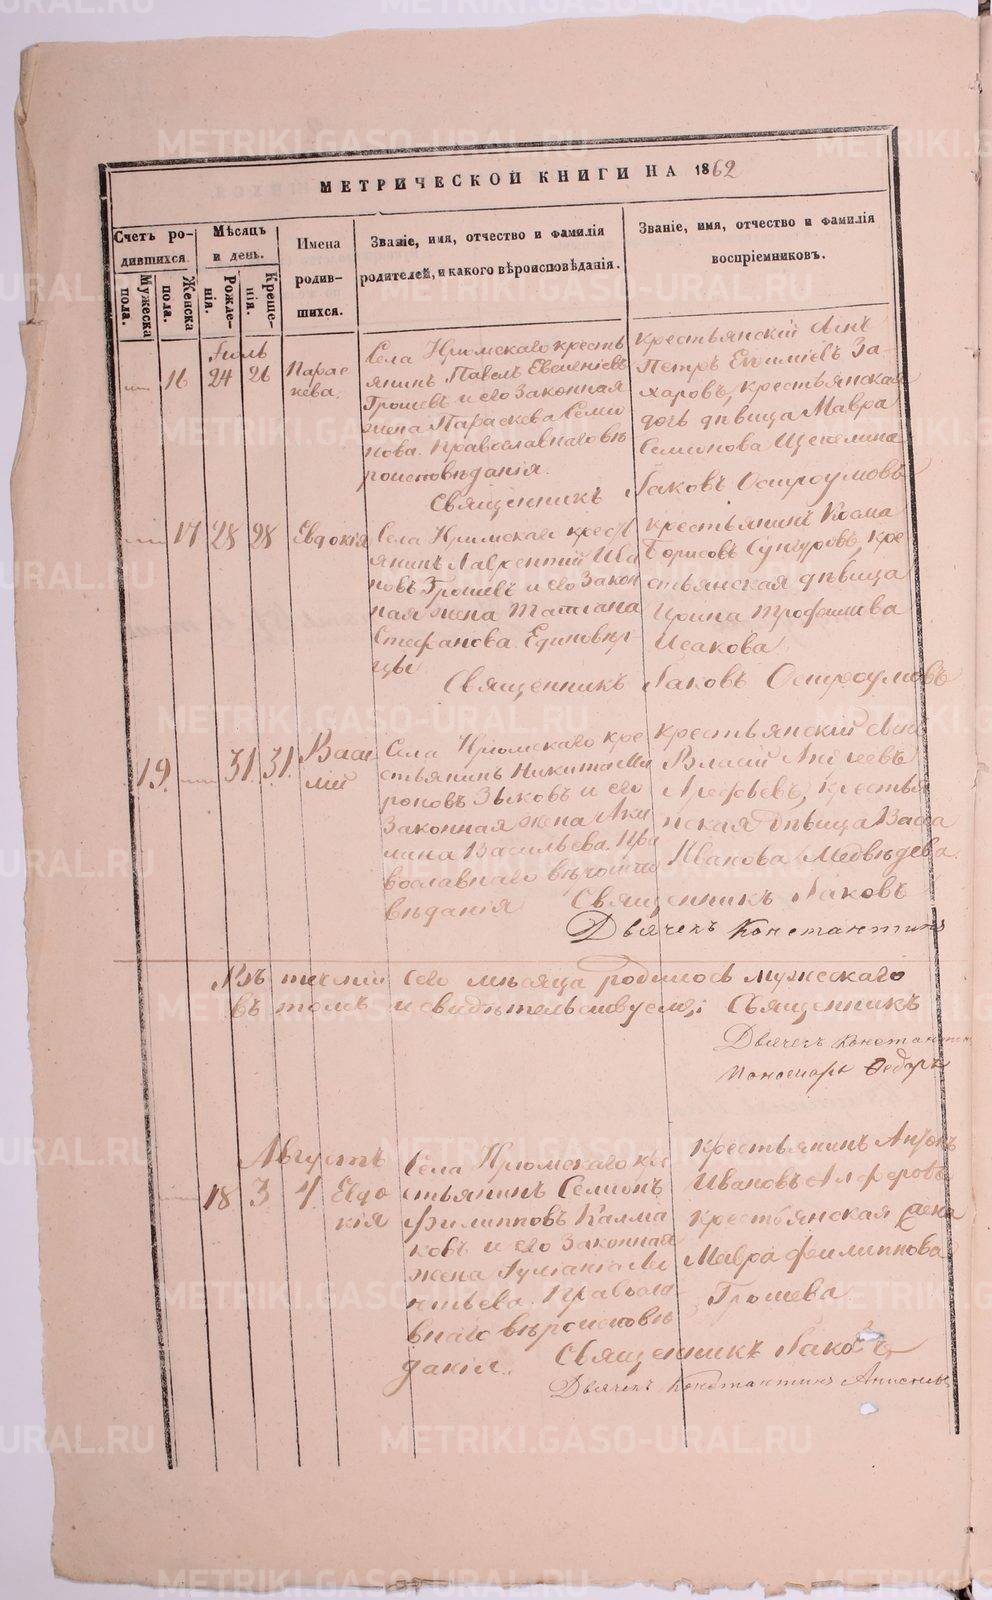 МЕТРИЧЕСКОЙ КНИГИ НА 1862
Счетъ ро-
дившихся.
Мужеска
пола.
Женска
пола.
Мѣсяцъ
и день.
Рожде-
нія.
Креще-
нія.
Имена
родив-
шихся.
Званіе, имя, отчество и фамилія
родителей, и какого вѣроисповѣданія.
Званіе, имя, отчество и фамилія
воспріемниковъ.
Іюль
16 24 26
Парас
кева.
Села Кромскаго кресть
янинъ Павелъ Евгеніевъ
Грошевъ и его Законная
жена Параскева Семио
нова. Православнаго вѣ
роисповѣданія.
крестьянскій сынъ
Петръ Евѳиміевъ За-
харовъ, крестьянская
дочь дѣвица Мавра
Семионова Щепелина
Священникъ Іаковъ Остроумовъ
17 28 28
Евдокія
Села крест
янинъ Лаврентій Ива
новъ Грошевъ и его Закон
ная жена Татіана
Стефанова. Единовѣр
цы.
крестьянинъ Косма
Борисовъ Сунгуровъ, кре
стьянская дѣвица
Ирина Трофимова
Исакова
Священникъ Іаковъ Остроумовъ
19 31. 31.
Васи
лій
Села кре
стьянинъ Никита Ми
роновъ Зыковъ и его
Законная жена Аки
лина Васильева. Пра
вославнаго вѣроиспо
вѣданія
крестьянскій сынъ
Власій Андреевъ
Арефьевъ, крестья
нская дѣвица Васса
Иванова Медвѣдева.
Священникъ Іаковъ
Дьячекъ Константинъ
Въ теченіи сего мѣсяца родилось мужескаго
въ томъ и свидѣтельствуемъ: Священникъ
Дьячекъ Константинъ
Пономарь Ѳедоръ
Августъ
18 3. 4.
Евдо
кія
Села кре
стьянинъ Семионъ
Филипповъ Калма
ковъ и его Законная
жена
Православ
внаго вѣроисповѣ
данія.
крестьянинъ Антонъ
Ивановъ Алферовъ
крестьянская жена
Мавра Филиппова
Грошева
Священникъ Іаковъ
Дьячекъ Константинъ
METRIKI.GASO-URAL.RU